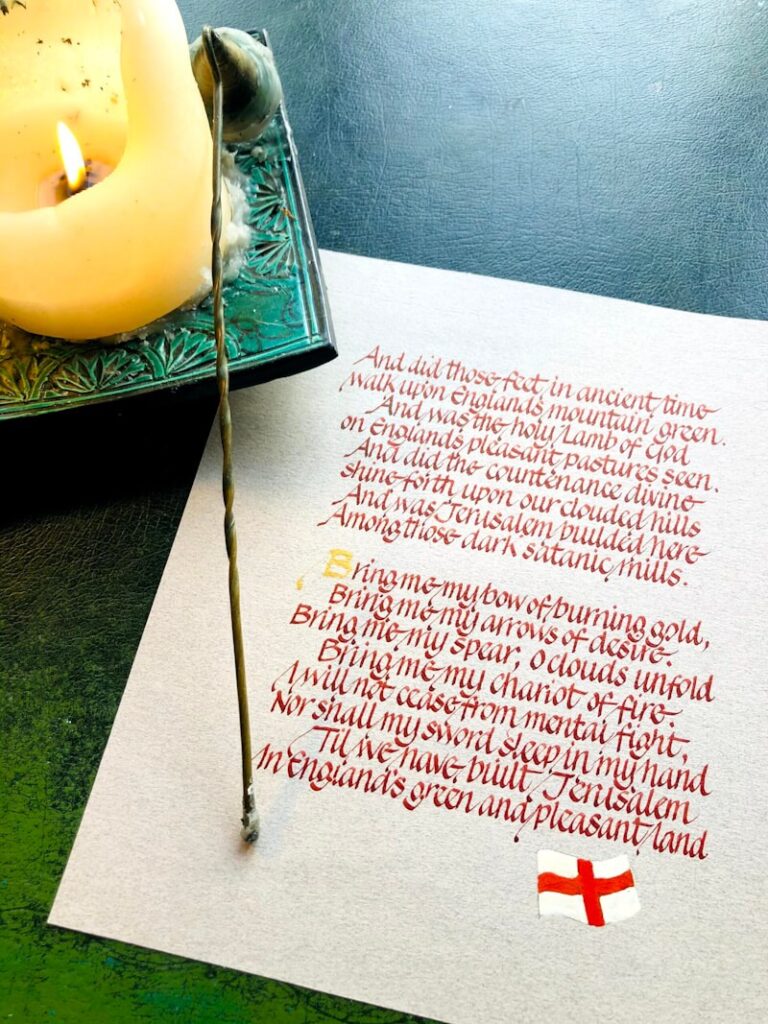 And did those feet in ancient time
walk upon England's mountain green.
And was the holy Lamb of God
on England's pleasant pastures seen.
And did the countenance divine
shine forth upon our clouded hills
And was Jerusalem builded here
Among those dark satanic mills.
Bring me my bow of burning gold,
Bring me my arrows of desire.
Bring me my spear, O clouds unfold
Bring me my chariot of fire.
I will not cease from mental fight,
Nor shall my sword sleep in my hand
Til we have built Jerusalem
In England's green and pleasant land